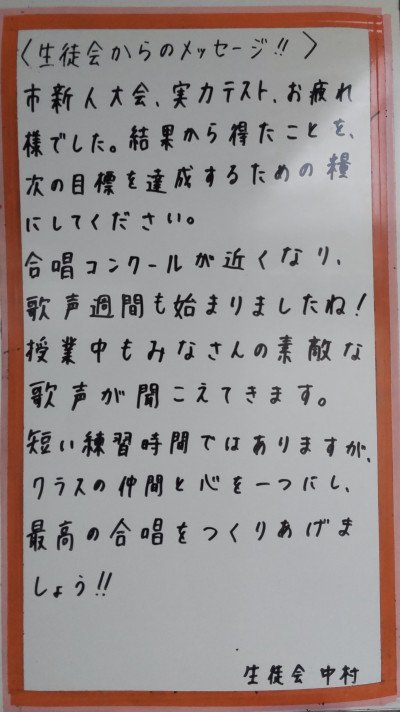 〈生徒会からのメッセージ!!〉
市新人大会、実力テスト、お疲れ
様でした。結果から得たことを、
次の目標を達成するための糧
にしてください。
合唱コンクールが近くなり、
歌声週間も始まりましたね!
授業中もみなさんの素敵な
歌声が聞こえてきます。
短い練習時間ではありますが、
クラスの仲間と心を一つにし、
最高の合唱をつくりあげま
しょう!!
生徒会 中村